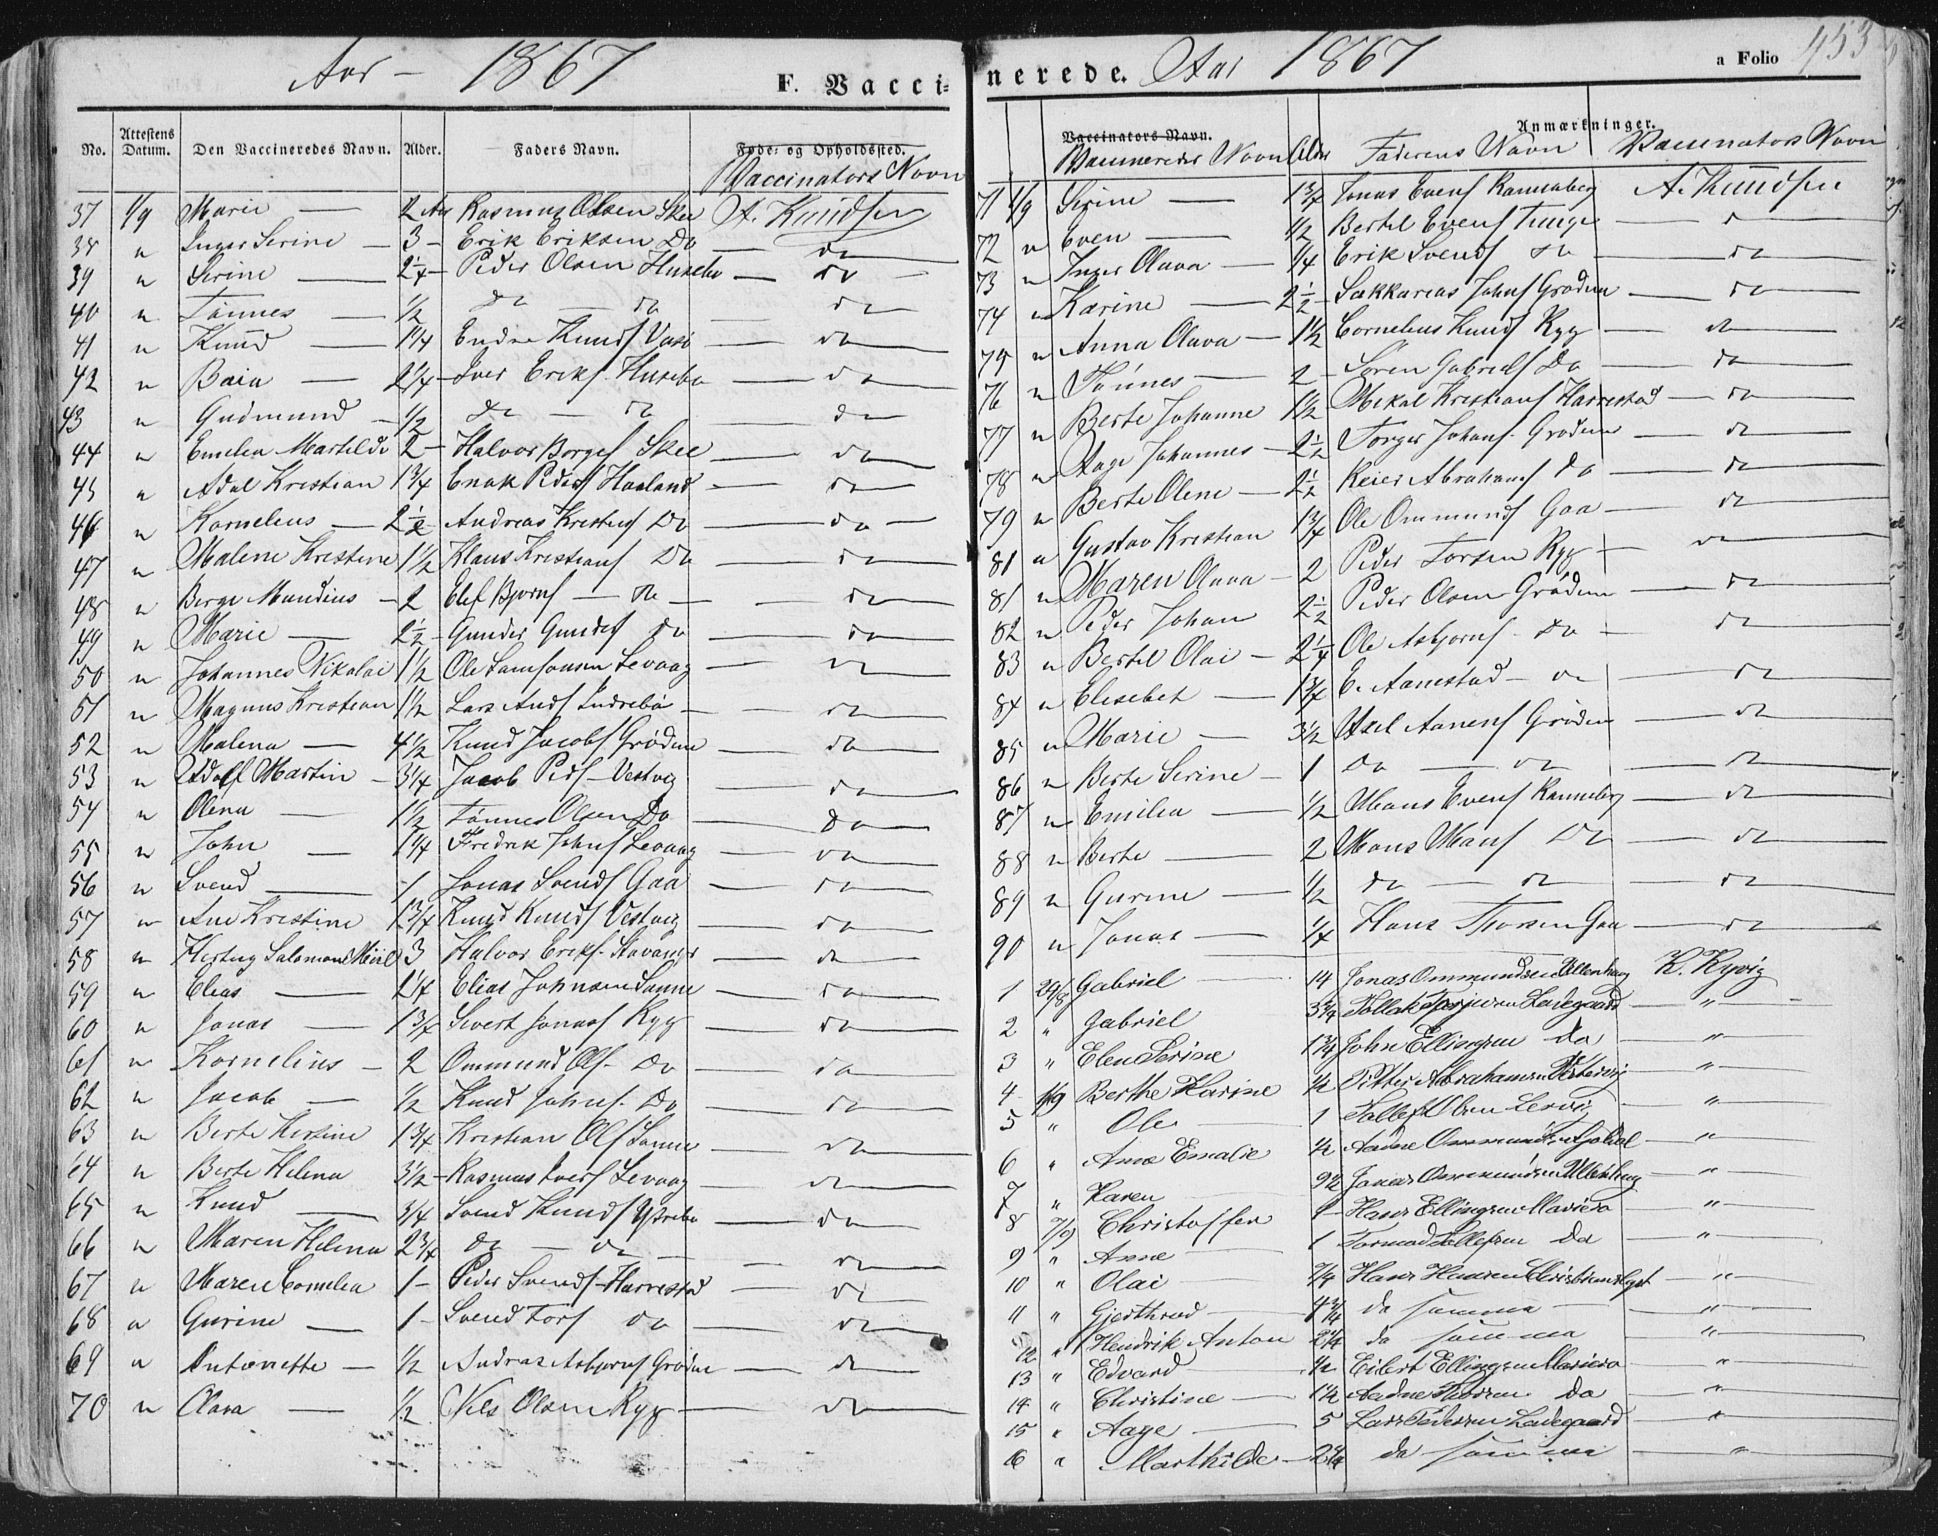 Aar – 1867
F. Vacci-
No. Attestens Datum. Den Vaccineredes Navn. Alder. Faders Navn. Føde- og Opholdssted.
Vaccinators Navn
37 1/9 Marie — 2 Aar Rasmus Olsen Skee A. Knudsen
38 " Inger Serine — 3 – Erik Eriksen Do — do
39 " Serine — 2 1/4 – Peder Olsen Husebø — do
40 " Tønnes — 1/2 do — do — do
41 " Knud — 1 1/4 Endre Knuds — do
42 " Baia — 2 1/4 – Iver Eriks. Husebø — do
43 " Gudmund – 1/2 do — do — do
44 " Emelea Martilde 2 – Halvor Borges Skee — do
45 " Adal Kristian 1 3/4 Enok Peders Haaland – do
46 " Kornelius — 2 1/2 Andreas Kristens Do — do
47 " Malene Kristine 1 1/2 Klaus Kristians Do — do
48 " Berge Mundius – 2 Elef Bjørns — do — do
49 " Marie — 2 1/2 – Gunder Gunders do — do
50 " Johannes Nikolai 1 1/2 Ole Samsonsen Levaag — do
51 " Magnus Kristian 1 1/2 Lars Ands Indrebø — do
52 " Malena — 4 1/2 Knud Jacobs. Grødem — do
53 " Adolf Martin – 3 1/4 Jacob Peds – Vestvig — do
54 " Olena — 1 1/2 Tønnes Olsen Do — do
55 " John — 1 1/4 Fredrik Johns Levaag — do
56 " Svend — 1 Jonas Svends Gaa — do
57 " Ane Kristine 1 3/4 Knud Knuds Vestvig — do
58 " Hertug Salomon 3 Halvor Eriks. Stavanger — do
59 " Elias — 2 1/4 Elias Johnsen Sanne — do
60 " Jonas — 1 3/4 Sivert Jonass Ryg — do
61 " Kornelius – 2 Ommund Ols – Do — do
62 " Jacob — 1/2 Knud Johns. Do — do
63 " Berte Kirstine 1 3/4 Kristian Ols Sanne — do
64 " Berte Helena 3 1/2 – Rasmus Ivers Levaag — do
65 " Knud — 3/4 Svend Knuds Ystebø — do
66 " Maren Helena 2 3/4 do — do — do
67 " Maren Cornelia 1 – Peder Svends – Harrestad — do
68 " Gurine — 1 – Svend Tors do — do
69 " Antonette — 1/2 Andreas Asbjørns Grødem — do
70 " Olava — 1/2 Nils Olsen Ryg — do
nerede. Aar 1867
a Folio 453
Vaccinators Navn. Anmærkninger.
Vaccineredes Navn Alder Faderens Navn Vaccinators Navn
71 1/9 Serine — 1 3/4 Jonas Evens Ranneberg A. Knudsen
72 " Even — 1/2 Bertel Evens Tunge — do
73 " Inger Olava — 1/4 Erik Svends do — do
74 " Karine — 2 1/2 – Sakkarias Johns Grødem — do
75 " Anna Olava — 1 1/2 Cornelius Knuds Ryg — do
76 " Tønnes — 2 – Søren Gabriels Do — do
77 " Berte Johanne 1 1/2 Mikal Kristians Harrestad — do
78 " Aage Johannes – 2 1/2 Torger Johans. Grødem — do
79 " Berte Olene – 2 1/2 Reier Abrahams do — do
81 " Gustav Kristian 1 3/4 Ole Ommunds Gaa — do
81 " Maren Olava – 2 Peder Torsen Ryg — do
82 " Peder Johan 2 1/2 Peder Olsen Grødem — do
83 " Bertel Olai – 2 1/4 Ole Asbjørns do — do
84 " Elisebet — 1 3/4 E. Aanestad – do — do
85 " Marie — 3 1/2 Axel Aanens Grødem — do
86 " Berte Serine – 1 Do — do — do
87 " Emilia — 1/2 Maus Evens Ranneberg — do
88 " Berte — 2 Mons Maus Do — do
89 " Gurine — 1/2 do — do — do
90 " Jonas — 1/4 Hans Thorsen Gaa — do
1 29/8 Gabriel — 14 Jonas Ommundsen Ullenhaug K. Kyvig
2 " Gabriel 3 3/4 Tollak Torjersen Ladegaard — "
3 " Elen Serine 1 3/4 John Ellingsen do — "
4 1/9 Berthe Karine 1/2 Pitter Abrahamsen Vestervig — "
5 " Ole 1 Tollef Olsen Lervig — "
6 " Ane Emalie 1/2 Aadne Ommundsen — "
7 " Karen 9 1/2 Jonas Ommundsen Ullenhaug — "
8 7/9 Christoffer 1 – Hans Ellingsen Mariero — "
9 " Anne 1 Tormod Tollefsen do — "
10 " Olai 7/4 Hans Hansen Christianslyst — "
11 " Gjerthrud — 4 3/4 do samme — "
12 " Hendrik Anton 2 1/4 do samme — "
13 " Edvard 1/2 Eilert Ellingsen Mariero — "
14 " Christine — 1 1/2 Aadne Thorsen do — "
15 " Aage 5 Lars Pedersen Ladegaard — "
16 " Marthilde – 2 1/4 do samme — "